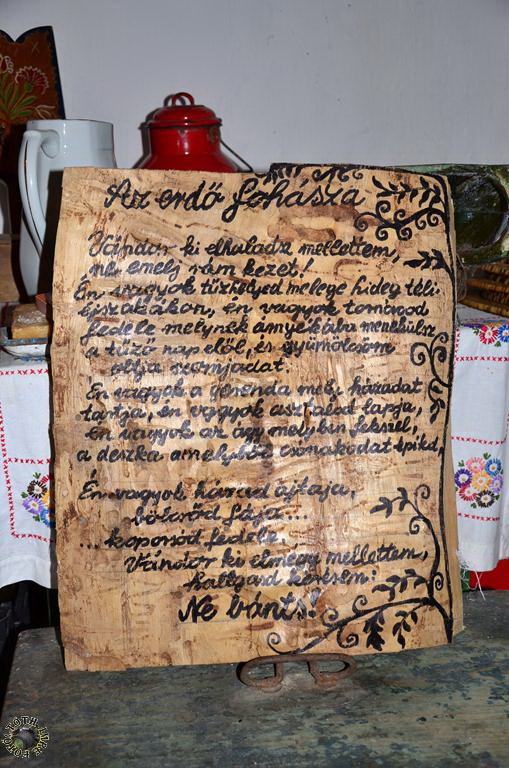 Az erdő fohásza
Vándor ki elhaladsz mellettem,
ne emelj rám kezet!
Én vagyok tűzhelyed melege hideg téli
éjszakákon, én vagyok tornácod
fedele melynek árnyékába menekülsz
a tűző nap elől, és gyümölcsöm
oltja szomjadat.
Én vagyok a gerenda mely házadat
tartja, én vagyok asztalod lapja,
én vagyok az ágy melyben fekszel,
a deszka amelyből csónakodat építed,
Én vagyok házad ajtaja,
bölcsőd fája...
...koporsód fedele.
Vándor ki elmégy mellettem,
hallgasd kérésem:
Ne bánts!